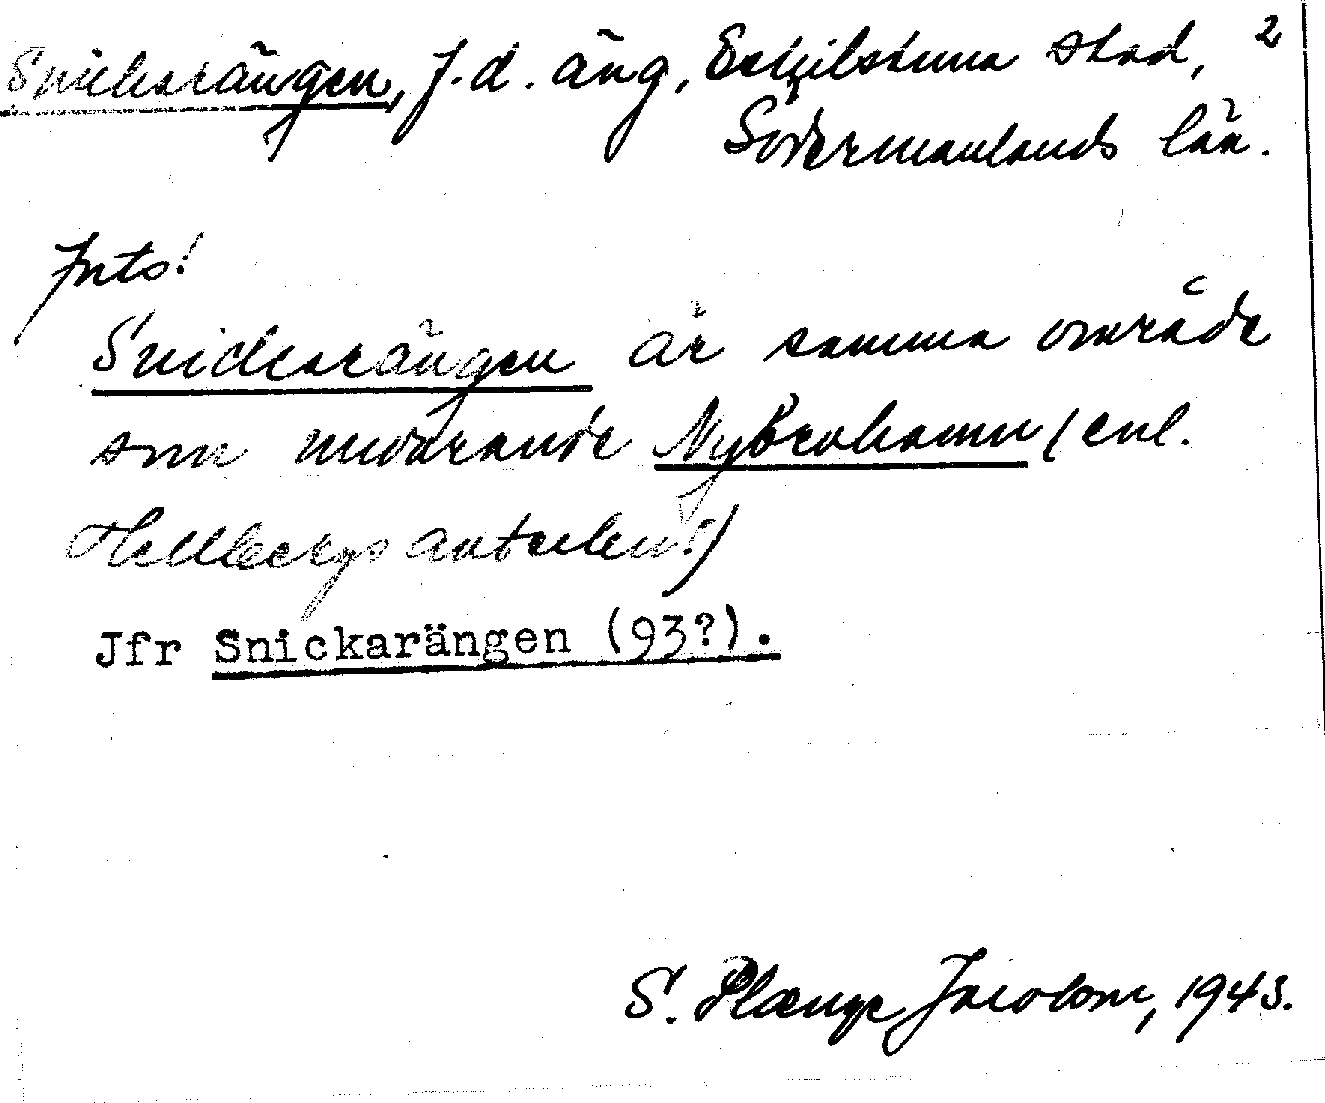 Snickarängen, f.d. äng, Eskilstuna stad, 2
Södermanlands län.
Jnts!
Snickarängen är samma område
som nuvarande Nybrohamn (enl.
Hellbergs anteckn.!)
Jfr Snickarängen (93?).
S. Plænge Jacobson, 1943.